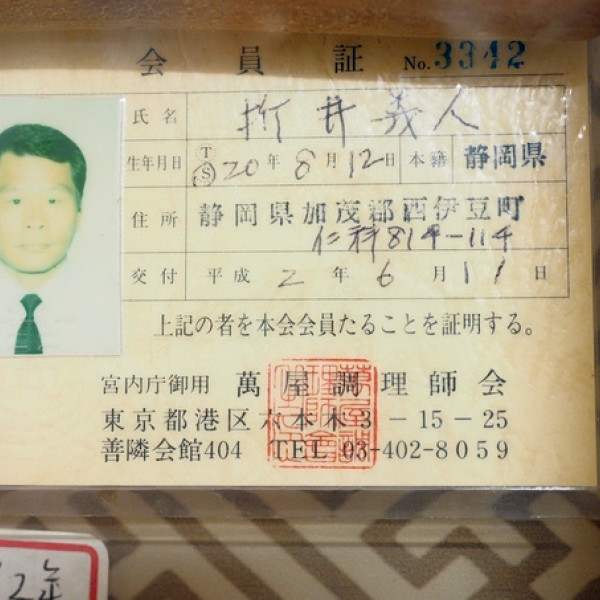 会員証 No. 3342
氏名 折井義人
生年月日 T S 20年8月12日 本籍 静岡県
住所 静岡県加茂郡西伊豆町
仁科814-114
交付 平成2年6月11日
上記の者を本会会員たることを証明する。
宮内庁御用 萬屋調理師会
東京都港区六本木3-15-25
善隣会館404 TEL 03-402-8059
2年